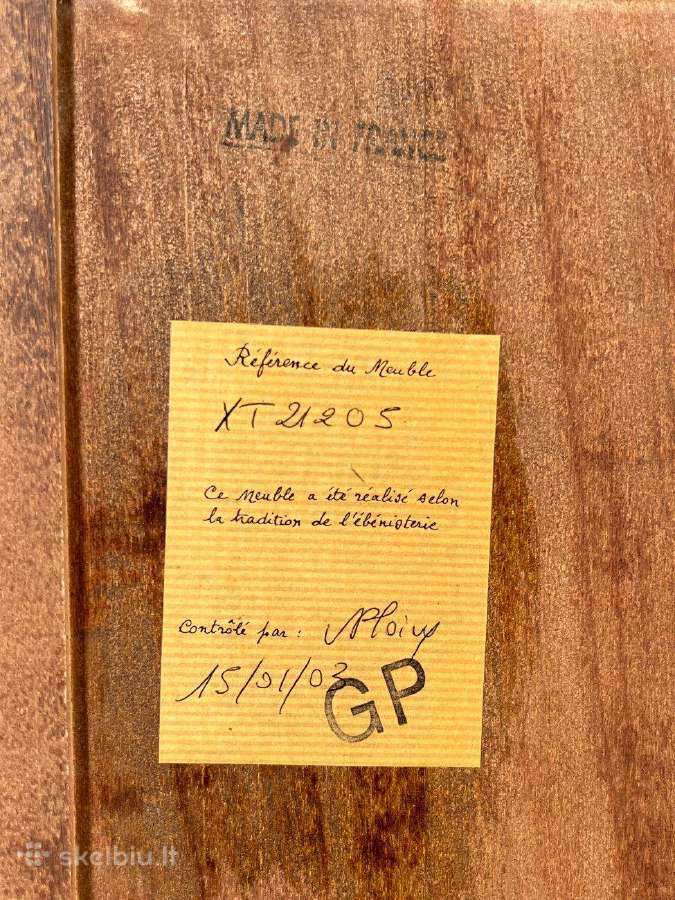 MADE IN FRANCE
Référence du Meuble
XT21205
Ce Meuble a été réalisé selon
la tradition de l'ébénisterie
Contrôlé par :
15/01/03
GP
skelbiu.lt